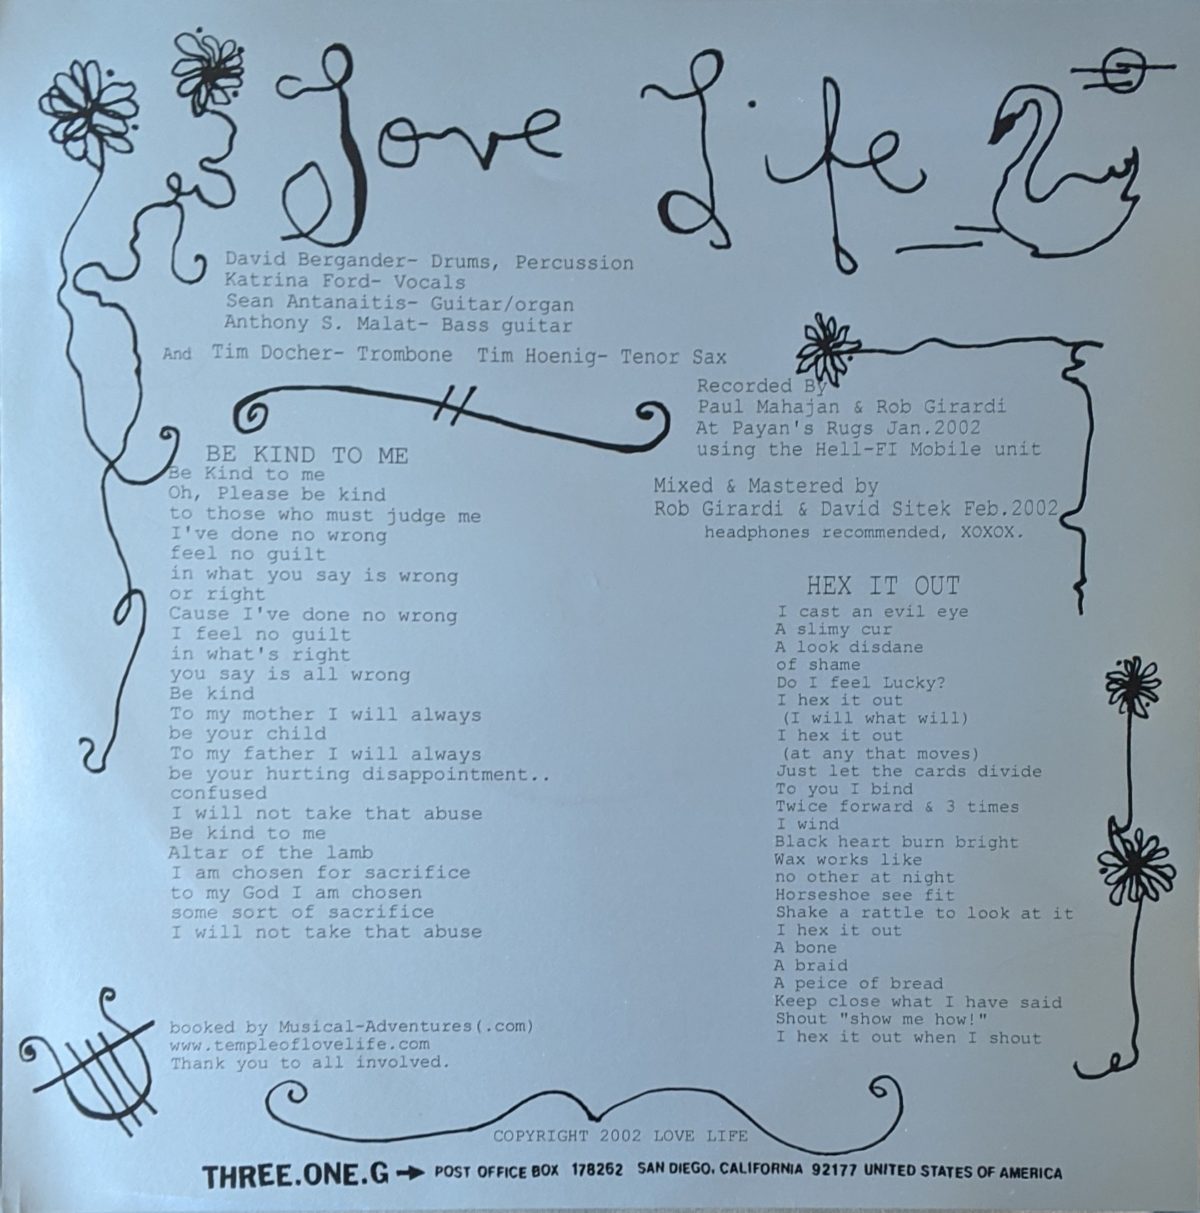 Love Life
David Bergander- Drums, Percussion
Katrina Ford- Vocals
Sean Antanaitis- Guitar/organ
Anthony S. Malat- Bass guitar
And Tim Docher- Trombone Tim Hoenig- Tenor Sax
Recorded By
Paul Mahajan & Rob Girardi
At Payan's Rugs Jan.2002
using the Hell-FI Mobile unit
Mixed & Mastered by
Rob Girardi & David Sitek Feb.2002
headphones recommended, XOXOX.
BE KIND TO ME
Be Kind to me
Oh, Please be kind
to those who must judge me
I've done no wrong
feel no guilt
in what you say is wrong
or right
Cause I've done no wrong
I feel no guilt
in what's right
you say is all wrong
Be kind
To my mother I will always
be your child
To my father I will always
be your hurting disappointment..
confused
I will not take that abuse
Be kind to me
Altar of the lamb
I am chosen for sacrifice
to my God I am chosen
some sort of sacrifice
I will not take that abuse
HEX IT OUT
I cast an evil eye
A slimy cur
A look disdane
of shame
Do I feel Lucky?
I hex it out
(I will what will)
I hex it out
(at any that moves)
Just let the cards divide
To you I bind
Twice forward & 3 times
I wind
Black heart burn bright
Wax works like
no other at night
Horseshoe see fit
Shake a rattle to look at it
I hex it out
A bone
A braid
A peice of bread
Keep close what I have said
Shout "show me how!"
I hex it out when I shout
booked by Musical-Adventures(.com)
www.templeoflovelife.com
Thank you to all involved.
COPYRIGHT 2002 LOVE LIFE
THREE.ONE.G → POST OFFICE BOX 178262 SAN DIEGO, CALIFORNIA 92177 UNITED STATES OF AMERICA